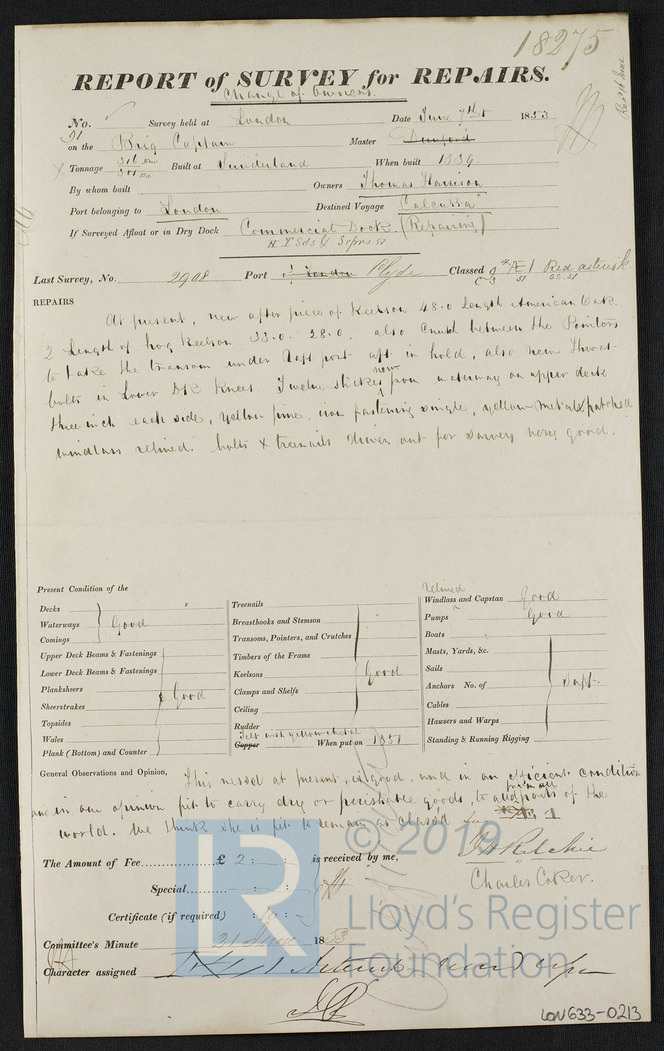 18275
REPORT of SURVEY for REPAIRS.
Change of Owners.
No. Survey held at London Date June 7th 1853
on the Brig Captain Master
Tonnage Built at Sunderland When built 1839.
By whom built Owners Thomas Harrison
Port belonging to London Destined Voyage Calcutta
If Surveyed Afloat or in Dry Dock Commercial Dock (Repairing)
Last Survey, No. 2908 Port of London Clyde Classed Æ 1 Red asterisk
REPAIRS
At present, new after piece of Keelson 48.0 Length American Oak.
2 Length of hog Keelson 33.0. 28.0, also Crutch between the Pointers
to take the transom under aft in hold, also new Throat
bolts in Lower Dk Knees. Twelve new from waterway on upper deck
three inch each side, yellow pine, iron fastening single, yellow metal patched
windlass relined. bolts & treenails driven out for survey very good.
Present Condition of the
Decks
Waterways Good
Comings
Upper Deck Beams & Fastenings
Lower Deck Beams & Fastenings
Planksheers Good
Sheerstrakes
Topsides
Wales
Plank (Bottom) and Counter
Treenails
Breasthooks and Stemson
Transoms, Pointers, and Crutches
Timbers of the Frame
Keelsons Good
Clamps and Shelfs
Ceiling
Rudder
Felt with yellow metal
Copper When put on 1851
relined
Windlass and Capstan Good
Pumps Good
Boats
Masts, Yards, &c.
Sails
Anchors No. of Suft.
Cables
Hausers and Warps
Standing & Running Rigging
General Observations and Opinion, This vessel at present, is good, and in an efficient condition
and in our opinion fit to carry dry or perishable goods, to and from all parts of the
world. We think she is fit to remain as class'd Æ 1
© 2019
Lloyd's Register
Foundation
LR
The Amount of Fee £ 2 : : is received by me,
J H Ritchie
Special : :
Charles Coker.
Certificate (if required) : :
Committee's Minute 21 June 1853
Character assigned
LON633-0213